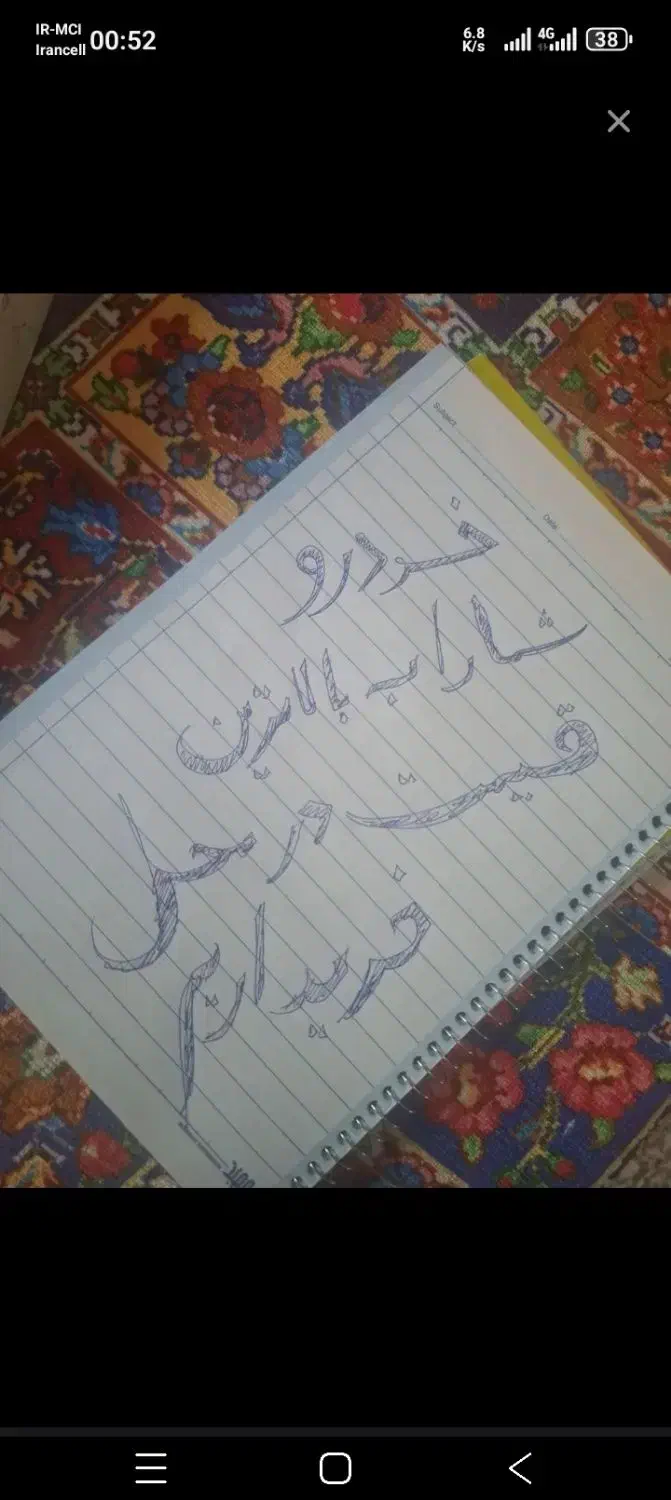 IR-MCI
Irancell 00:52 6.8 K/s 4G 38
Subject
Date
خودرو
شما را به بالاترین
قیمت در محل
خریدارم